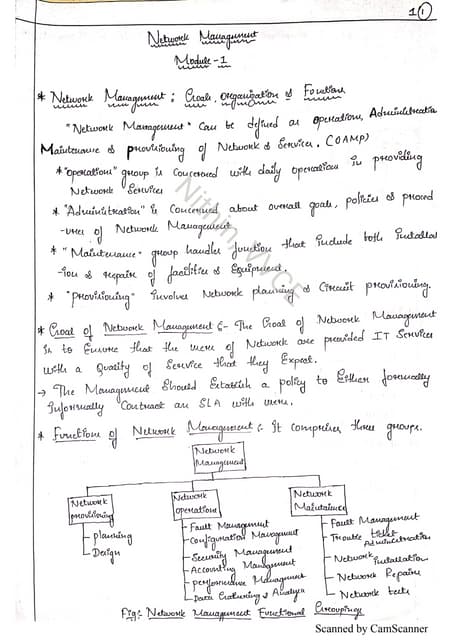 1 (1)
Network Management
Module - 1
* Network Management : Goals, organization & Function
"Network Management" Can be defined as operation, Administratio
Maintenance & provisioning of Network & Services. (OAMP)
* "operation" group is Concerned with daily operations in providing
Network Services
* "Administration" is Concerned about overall goals, policies & proced
-ures of Network Management
* "Maintenance" group handles function that include both Installat
-ion & repairs of facilities & Equipment.
* "provisioning" involves Network planning & Circuit provisioning.
* Goal of Network Management :- The Goal of Network Management
is to Ensure that the users of Network are provided IT Services
with a Quality of Service that they Expect.
→ The Management Should Establish a policy to Either formally
Informally Contract an SLA with users.
* Function of Network Management :- It comprises three groups.
Network
Management
Network
provisioning
- planning
- Design
Network
operations
- Fault Management
- Configuration Management
- Security Management
- Accounting Management
- performance Management
- Data Gathering & Analysis
Network
Maintainance
- Fault Management
- Trouble ticket
Administration
- Network installation
- Network Repairs
- Network tests
Fig: Network Management Functional Groupings
Nithin, VVCE
Scanned by CamScanner